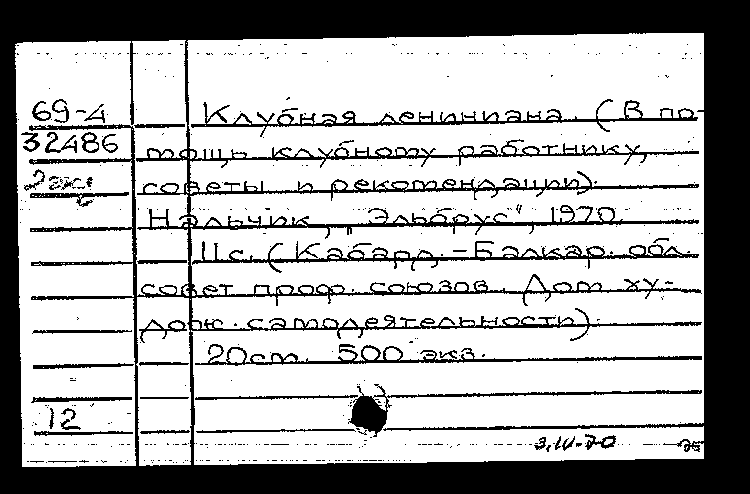 69-4 Клубная лениниана. (В по-
32486 мощь клубному работнику,
2 экз советы и рекомендации).
Нальчик, „Эльбрус", 1970.
11с. (Кабард.-Балкар. обл.
совет проф. союзов. Дом ху-
дож. самодеятельности).
20см. 500 экз.
12
3.III-70